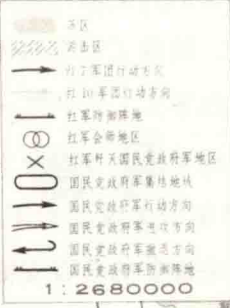 苏区
游击区
红7军团行动方向
红10军团行动方向
红军防御阵地
红军会师地区
红军歼灭国民党政府军地区
国民党政府军集结地域
国民党政府军行动方向
国民党政府军进攻方向
国民党政府军撤退方向
国民党政府军防御阵地
1:2680000